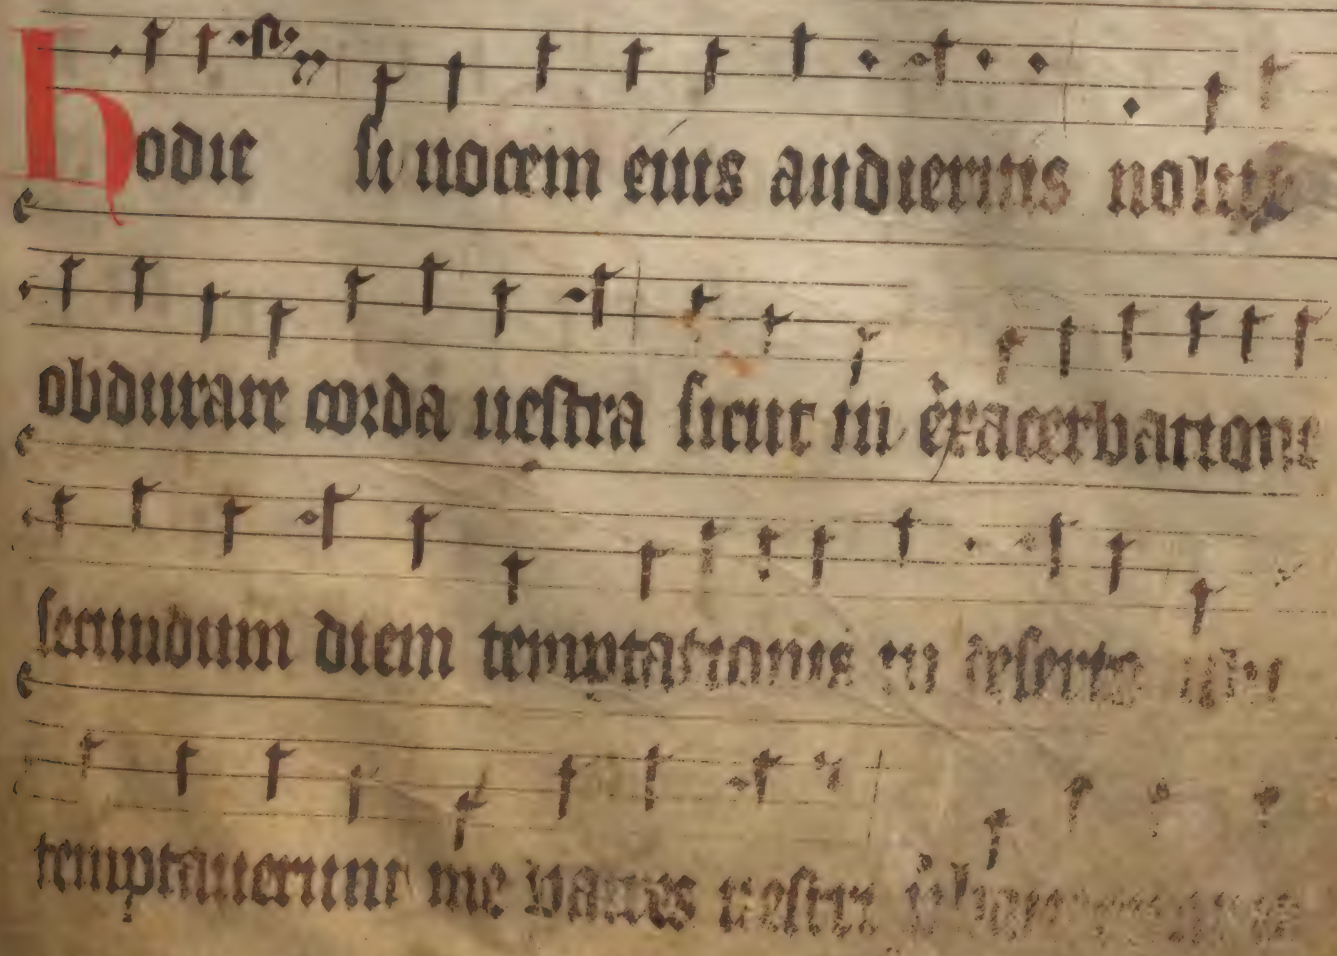 hodie si uocem eius audieritis nolite
obdurare corda uestra sicut in exacerbatione
secundum diem temptationis in deserto ubi
temptauerunt me patres uestri